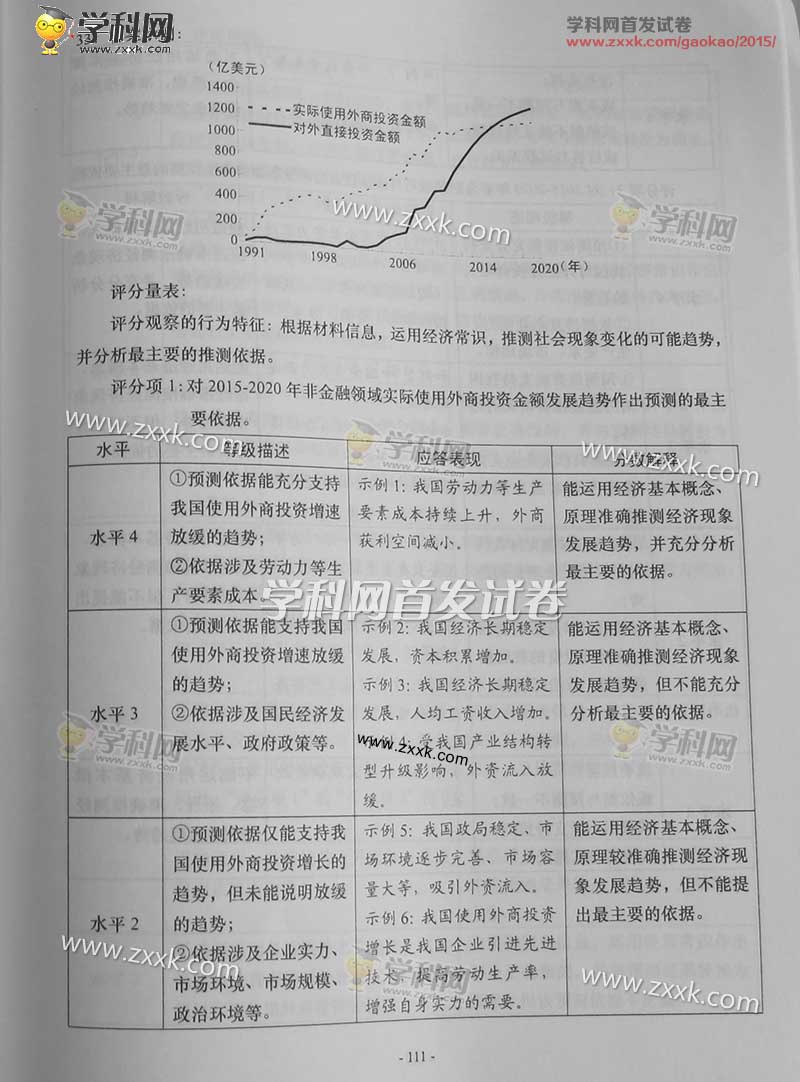 学科网
www.zxxk.com
学科网首发试卷
www.zxxk.com/gaokao/2015/
33
(亿美元)
1400
1200
1000
800
600
400
200
0
实际使用外商投资金额
对外直接投资金额
1991 1998 2006 2014 2020(年)
学科网
www.zxxk.com
学科网
评分量表:
评分观察的行为特征:根据材料信息,运用经济常识,推测社会现象变化的可能趋势,
并分析最主要的推测依据。
评分项 1:对 2015-2020 年非金融领域实际使用外商投资金额发展趋势作出预测的最主
要依据。
www.zxxk.com
学科网
www.zxxk.com
水平 等级描述 应答表现 分数解释
水平 4
①预测依据能充分支持
我国使用外商投资增速
放缓的趋势;
②依据涉及劳动力等生
产要素成本。
示例 1:我国劳动力等生产
要素成本持续上升,外商
获利空间减小。
能运用经济基本概念、
原理准确推测经济现象
发展趋势,并充分分析
最主要的依据。
学科网首发试卷
水平 3
①预测依据能支持我国
使用外商投资增速放缓
的趋势;
②依据涉及国民经济发
展水平、政府政策等。
示例 2:我国经济长期稳定
发展,资本积累增加。
示例 3:我国经济长期稳定
发展,人均工资收入增加。
示例 4:受我国产业结构转
型升级影响,外资流入放
缓。
能运用经济基本概念、
原理准确推测经济现象
发展趋势,但不能充分
分析最主要的依据。
学科网
www.zxxk.com
学科网
水平 2
①预测依据仅能支持我
国使用外商投资增长的
趋势,但未能说明放缓
的趋势;
②依据涉及企业实力、
市场环境、市场规模、
政治环境等。
示例 5:我国政局稳定、市
场环境逐步完善、市场容
量大等,吸引外资流入。
示例 6:我国使用外商投资
增长是我国企业引进先进
技术,提高劳动生产率,
增强自身实力的需要。
能运用经济基本概念、
原理较准确推测经济现
象发展趋势,但不能提
出最主要的依据。
www.zxxk.com
学科网
www.zxxk.com
- 111 -